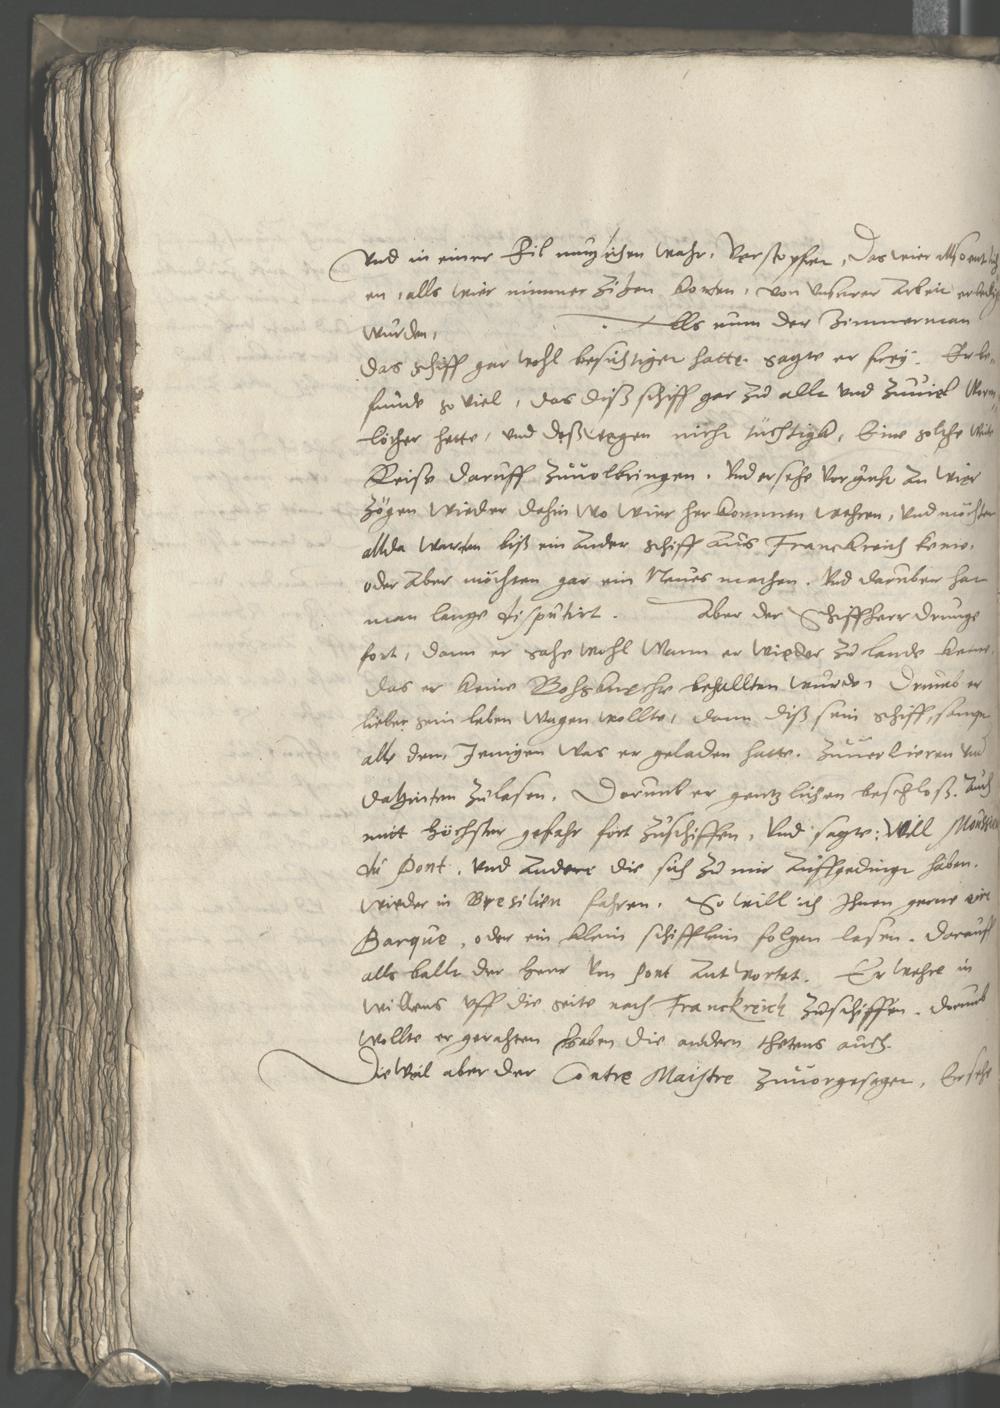 Und in einer Eil mug lichen wahr, Verstopfen, Das wier allso entlich
en, alls wier nimmer ziehen konten, von unserer Arbeit erledig
wurden,
Alls nun der Zimmerman
das schiff gar wohl besichtiget hatte, sagte er frey. Er be-
funde so viel, das diß schiff gar zu allt und zuuiel Worm-
löcher hette, und deßwegen nicht tüchtigk, Eine solche weite
Reise daruff zuuolbringen. Und ersehe vor gutt an wier
zögen wieder dahin wo wier her kommen wehren, Und möchten
allda warten biß ein ander schiff aus Franckreich keme,
oder aber möchten gar ein Neues machen. Und darüber hat
man lange disputirt. Aber der Schiffherr drunge
fort, dann er sahe wohl Wann er wieder zu lande keme,
das er keine Bohsknechte behallten wurde, Drumb er
lieber sein leben wagen wollte, dann diß sein schiff, sampt
alle dem Jenigen was er geladen hatte, zuuerlieren und
dahinten zulasen. Darumb er gentzlichen beschloß, Auch
mitt höchster gefahr fort zuschiffen, Und sagte: Will Monsieur
du Pont, und andere die sich zu mir auffgedingt haben,
wieder in Bresilien fahren, So will ich Ihnen gerne eine
Barque, oder ein klein schifflein folgen lasen. Darauff
alls balde der herr von Pont antwortet. Er wehre in
willens uff die seite nach Franckreich zuschiffen. Darumb
wollte er gerahten haben die andern thetens auch.
Dieweil aber der Contre Maistre zuuorgesaget, Er sehe